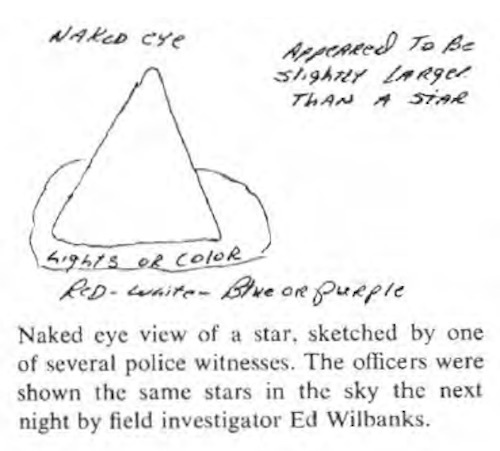 NAKED EYE
APPEARED TO BE
SLIGHTLY LARGER
THAN A STAR
LIGHTS OR COLOR
RED - WHITE - BLUE OR PURPLE
Naked eye view of a star, sketched by one
of several police witnesses. The officers were
shown the same stars in the sky the next
night by field investigator Ed Wilbanks.